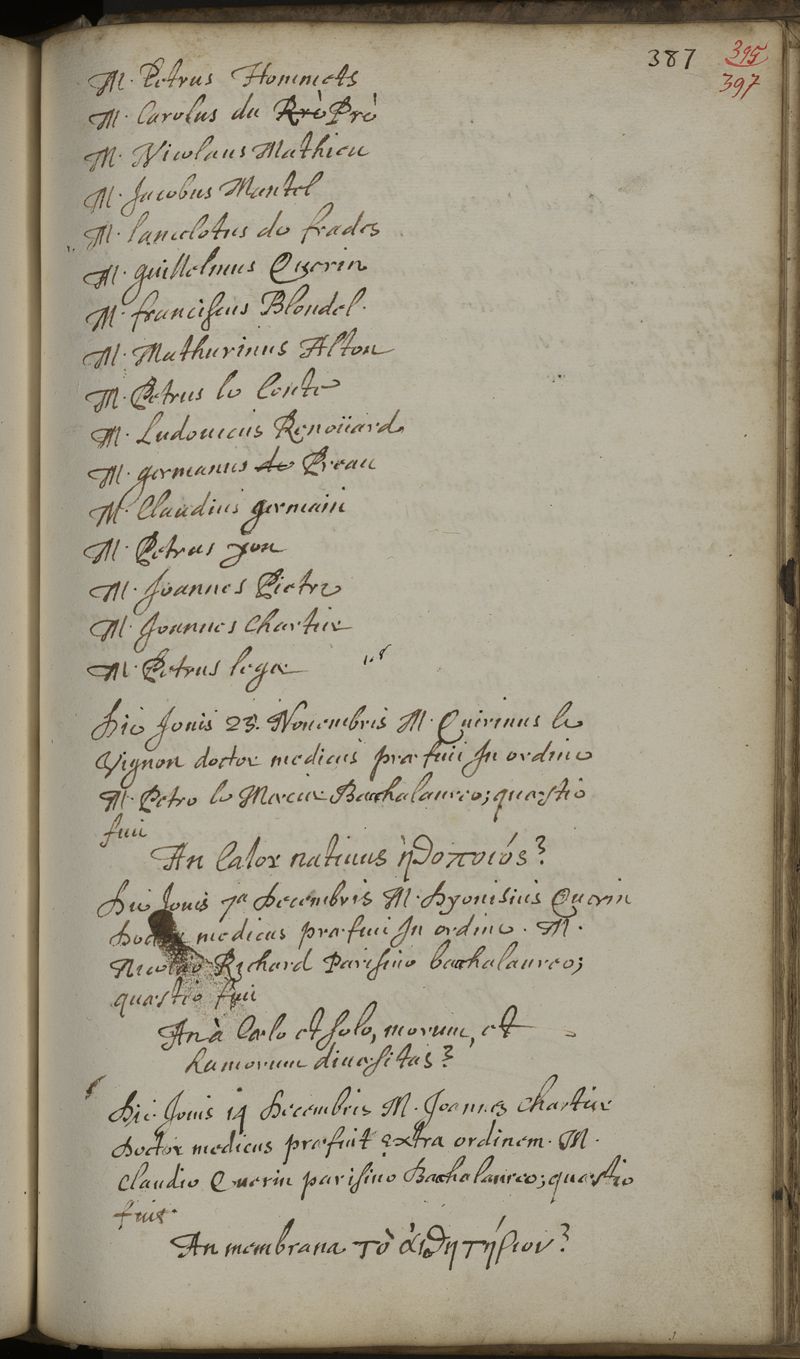 387 395
397
M. Petrus Hommets
M. Carolus du Prè Prè
M. Nicolaus Mathieu
M. Jacobus Mantel
M. lancelotus de frades
M. guillelmus Querin
M. franciscus Blondel.
M. Mathurinus Alton
M. Petrus le Conte
M. Ludouicus Renoüard
M. germanus de Preau
M. Claudius germain
M. Petrus yon
M. Joannes Pietre
M. Joannes Chartier
M. Petrus leger
Die Jouis 23. Nouembris M. Quirinus le
Vignon doctor medicus præfuit In ordine
M. Petro le Mercier Bachalaureo; quæstio
fuit
An Calor natiuus ἠθοποιός?
Die Jouis 7a Decembris M. Dyonisius Querin
Doctor medicus præfuit In ordine. M.
Nicolao Richard Parisino bachalaureo;
quæstio fuit
An à Cælo et solo, morum, et
humorum diuersitas?
Die Jouis 14 Decembris M. Joannes Chartier
Doctor medicus præfuit extra ordinem. M.
Claudio Querin parisino Bachalaureo; quæstio
fuit.
An membrana τὸ ἀιθητήριον?